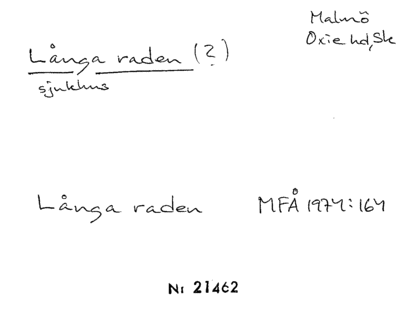 Malmö
Oxie hd, Sk
Långa raden (?)
sjukhus
Långa raden MFÅ 1974:164
Nr 21462